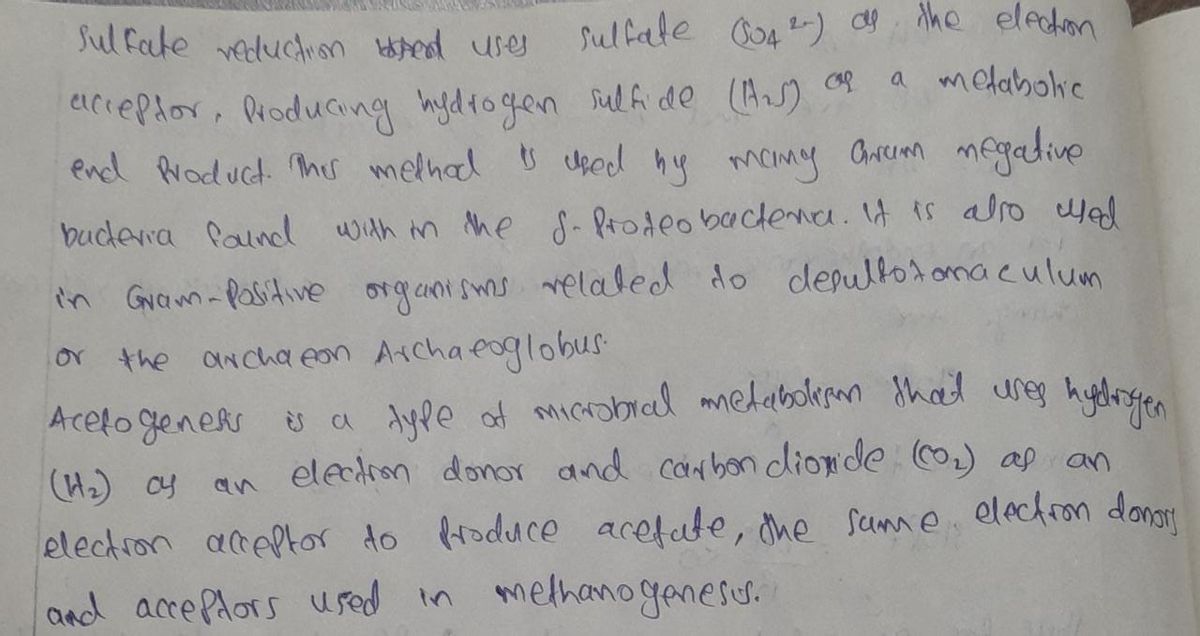 Sulfate reduction uses sulfate (SO4 2-) as the electron
acceptor, Producing hydrogen sulfide (H2S) as a metabolic
end Product. This method is used by many Gram negative
bacteria found with in the δ-Proteobacteria. It is also used
in Gram-Positive organisms related to desulfotomaculum
or the archaeon Archaeoglobus.
Acetogenesis is a type of microbial metabolism that uses hydrogen
(H2) as an electron donor and carbon dioxide (CO2) as an
electron acceptor to Produce acetate, the same electron donors
and acceptors used in methanogenesis.